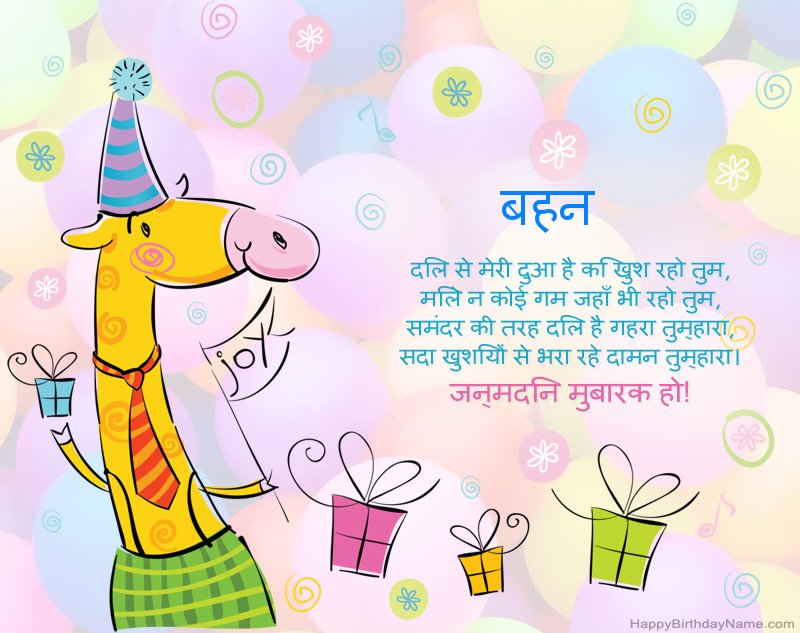 joy
बहन
दिल से मेरी दुआ है कि खुश रहो तुम,
मिले न कोई गम जहाँ भी रहो तुम,
समंदर की तरह दिल है गहरा तुम्हारा,
सदा खुशियों से भरा रहे दामन तुम्हारा।
जन्मदिन मुबारक हो!
HappyBirthdayName.com